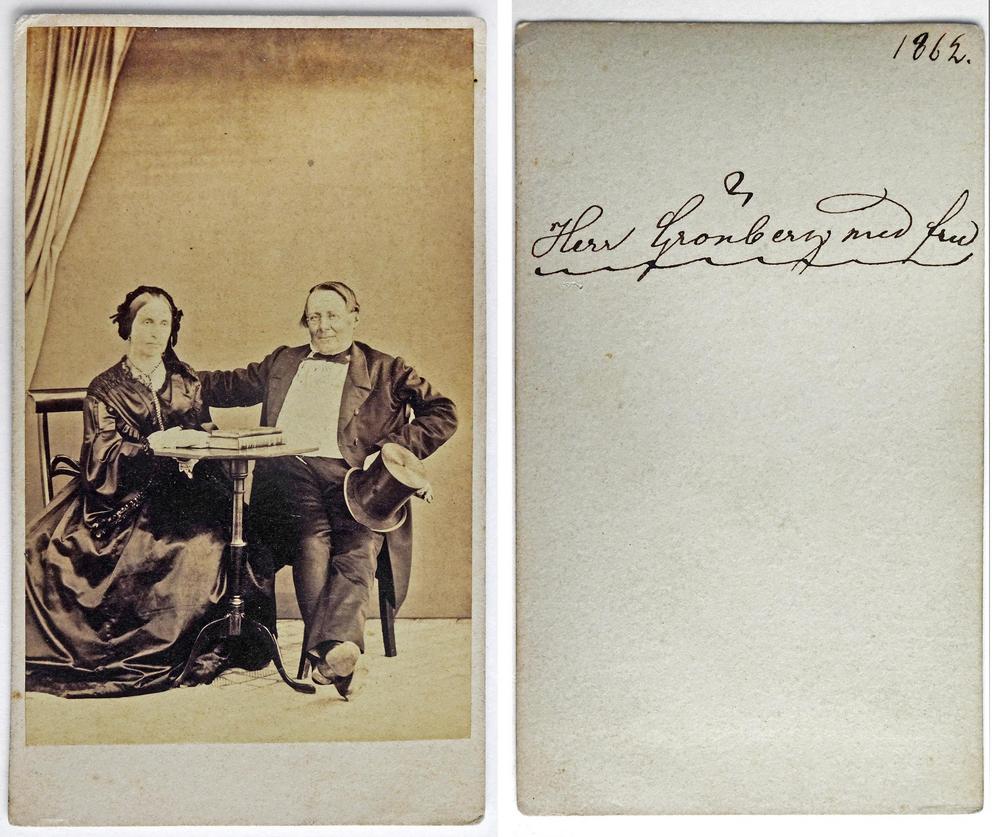 1862.
Herr Grönberg med fru